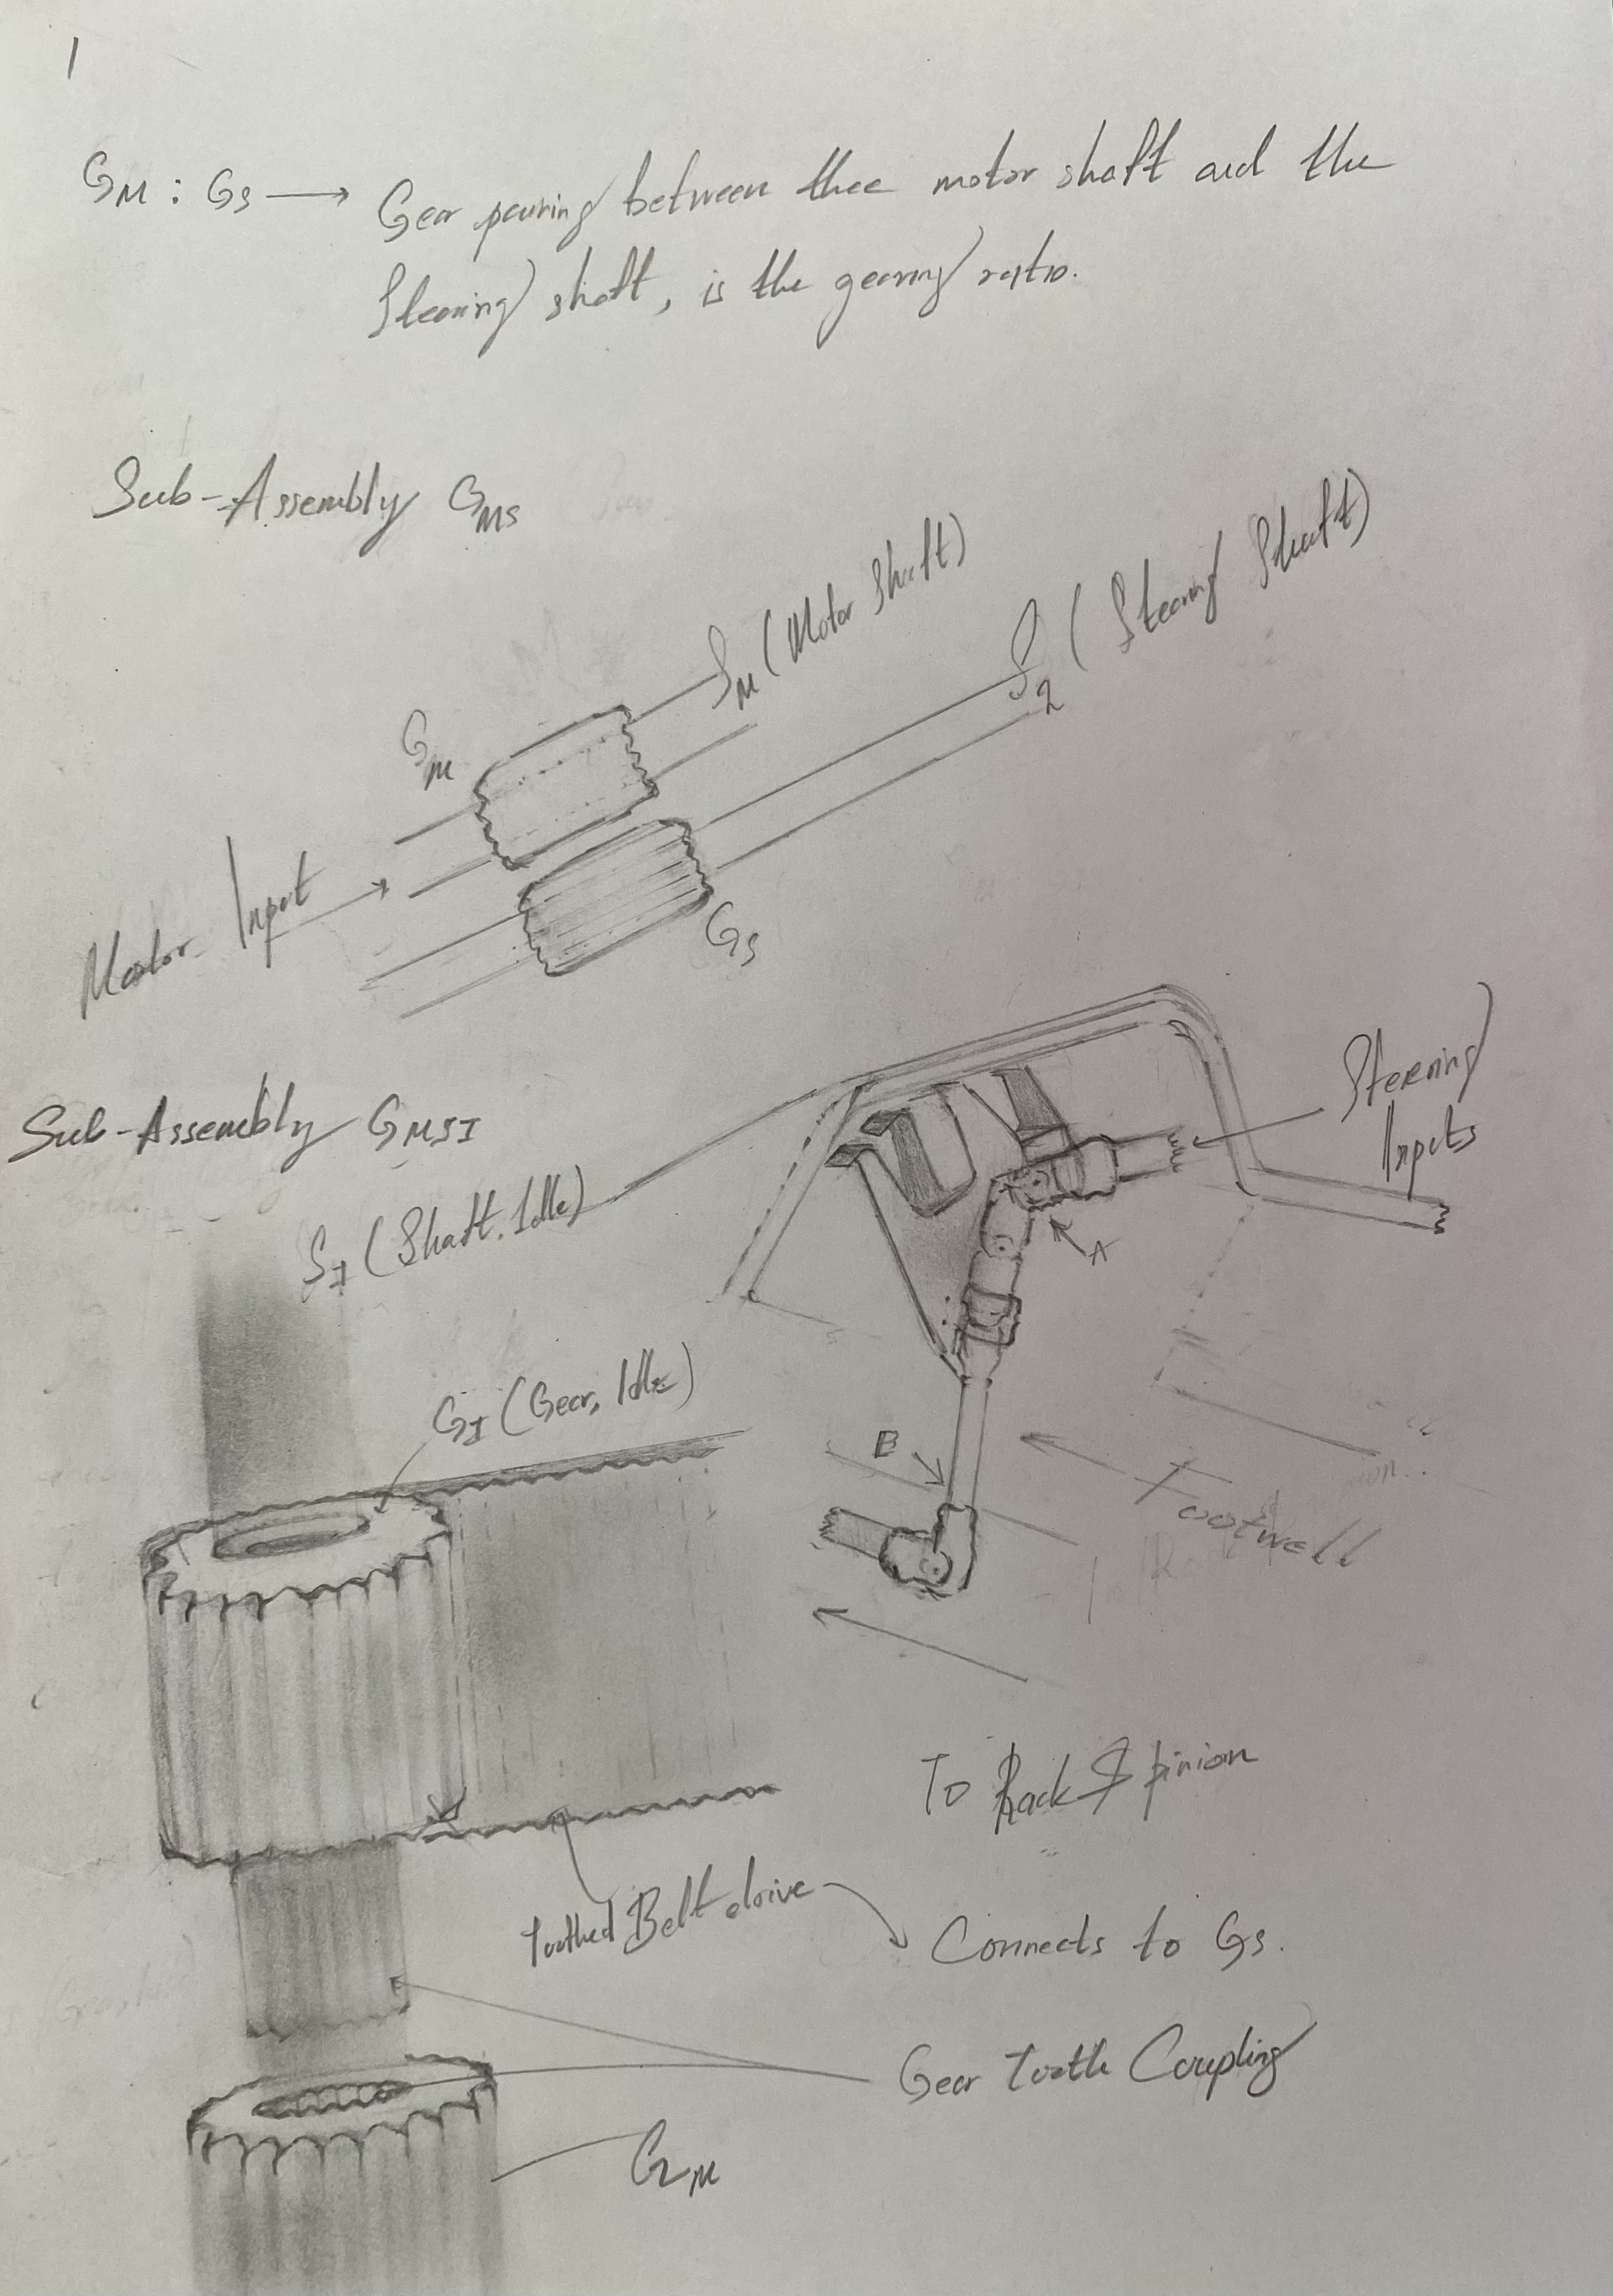 1
GM : GS → Gear pairing between thee motor shaft and the
Steering shaft, is the gearing ratio.
Sub-Assembly GMS
SM (Motor Shaft)
S2 (Steering Shaft)
GM
Motor Input
GS
Sub-Assembly GMSI
Steering
Inputs
SI (Shaft, Idle)
A
GI (Gear, Idle)
B
Footwell
To Rack & pinion
Toothed Belt drive
Connects to GS.
Gear Tooth Coupling
GM